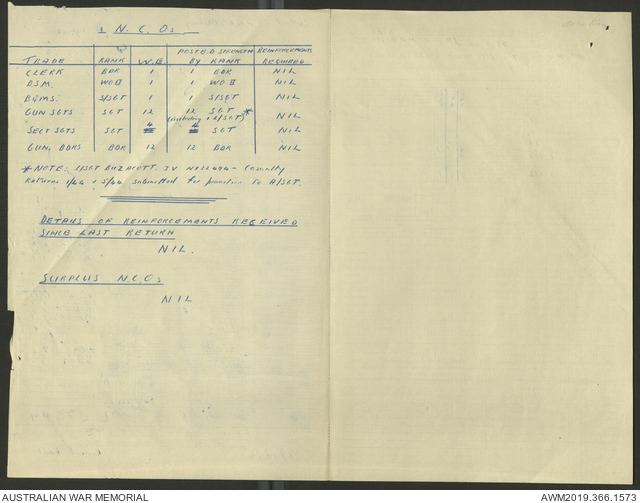 N.C.Os
POSTED STRENGTH REINFORCEMENTS
TRADE RANK W.E. BY RANK REQUIRED
CLERK BDR 1 1 BDR NIL
B.S.M. WO II 1 1 WO II NIL
BQMS. S/SGT 1 1 S/SGT NIL
GUN SGTS SGT 12 12 SGT * NIL
(including 1 L/SGT)
SECT SGTS SGT 4 4 SGT NIL
GUN, BDRS BDR 12 12 BDR NIL
* NOTE: L/SGT BUZACOTT. JV - Casualty
Returns 1/44 & 5/44 submitted for promotion to A/SGT.
DETAILS OF REINFORCEMENTS RECEIVED
SINCE LAST RETURN
NIL.
SURPLUS N.C.Os
NIL
AUSTRALIAN WAR MEMORIAL AWM2019.366.1573